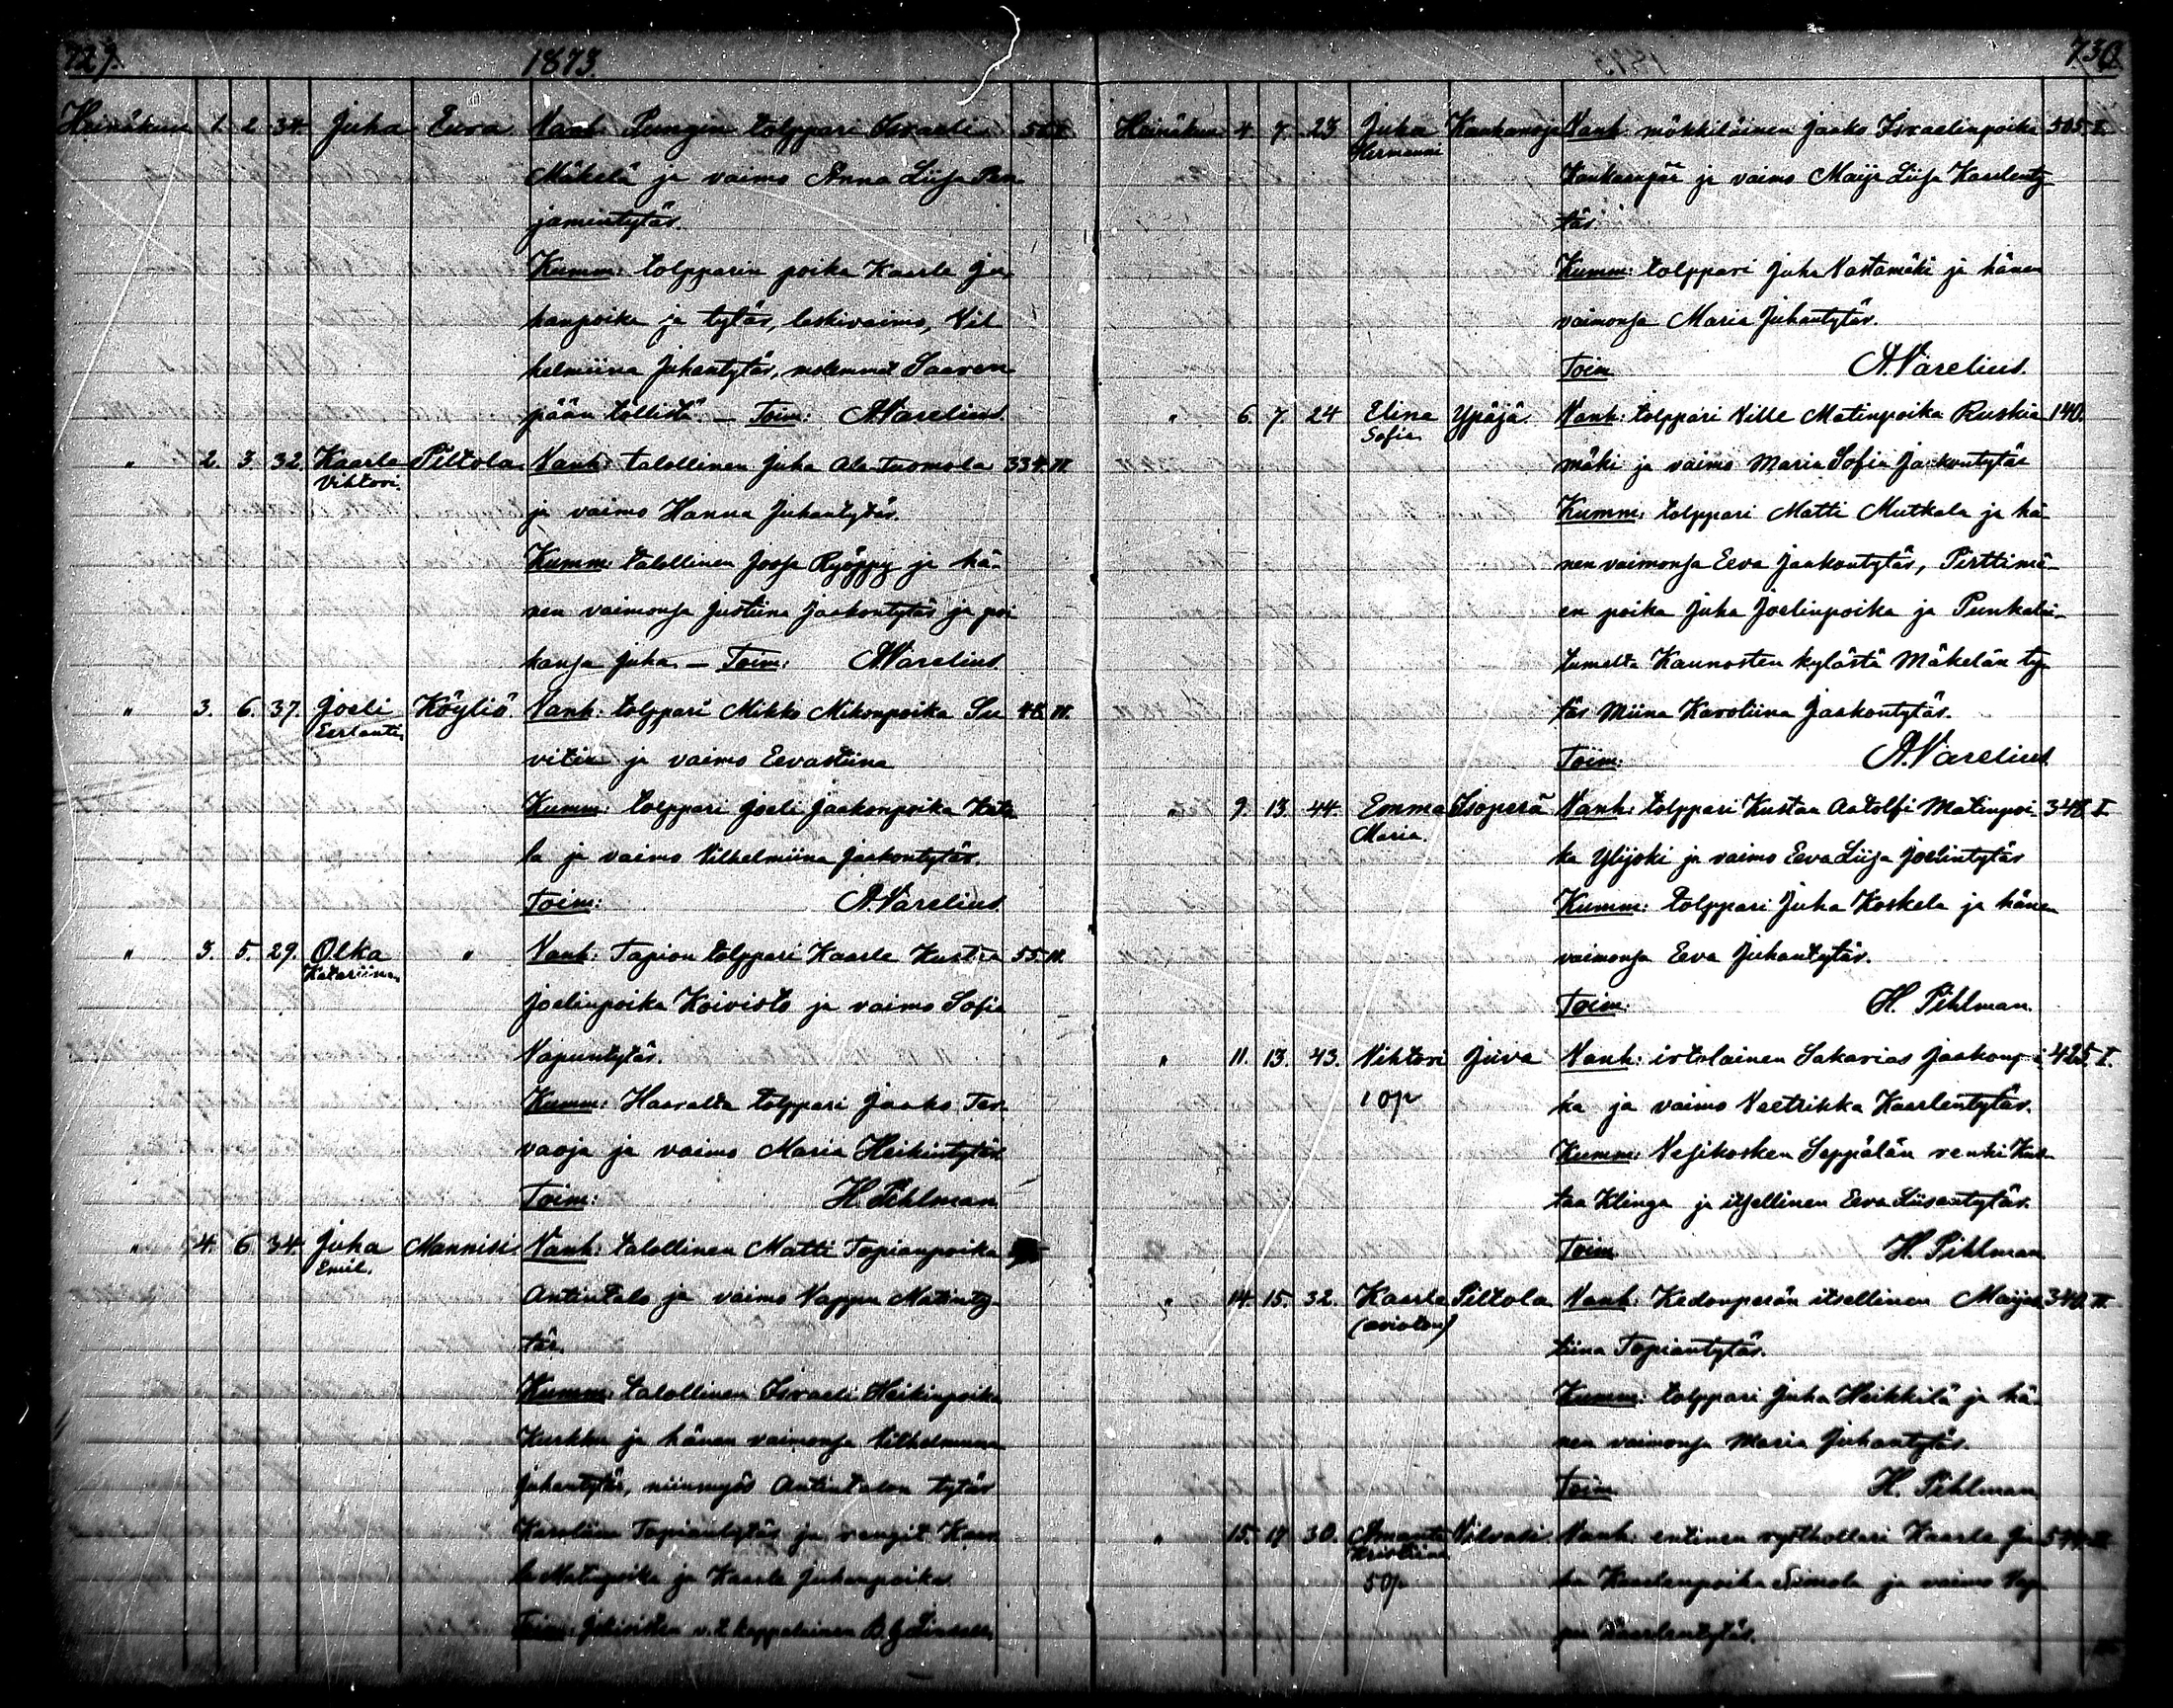 729. 1873.
Heinäkuu 1. 2. 34. Juha Euva Vanh: Pungin tolppari Israeli
Mäkelä ja vaimo Anna Liisa Pen
jamintytär.
Kumm: tolpparin poika Kaarle Ju
hanpoika ja tytär, leskivaimo, Vil
helmiina Juhantytär, molemmat Saaren
pään tollista. — Toim: A. Varelius.
" 2. 3. 32. Kaarle Piltola Vanh: talollinen Juha Ala-Tuomola 334. II.
Vihtori.
ja vaimo Hanna Juhantytär.
Kumm: talollinen Joosa Ryöppy ja hä-
nen vaimonsa Justiina Jaakontytär ja poi
kansa Juha. — Toim: A. Varelius
" 3. 6. 37. Joeli Köyliö. Vanh: tolppari Mikko Mikonpoika Su 48. II.
Eerlanti.
vitie ja vaimo Eevastiina
Kumm: tolppari Joeli Jaakonpoika
la ja vaimo Vilhelmiina Jaakontytär.
Toim: A. Varelius
" 3. 5. 29. Olka " Vanh: Tapion tolppari Kaarle Kustaa 55. II.
Katariina
Joelinpoika Koivisto ja vaimo Sofia
Vapuntytär.
Kumm: Haaralta tolppari Jaako Ter
vaoja ja vaimo Maria Heikintytär.
Toim: H. Pihlman
" 4. 6. 34. Juha Mannisi Vanh: talollinen Matti Topianpoika
Emil.
Antintalo ja vaimo Vappu Matinty-
tär.
Kumm: talollinen Israeli Heikinpoika
Kurkku ja hänen vaimonsa Vilhelmiina
Juhantytär, niinmyös Antintalon tytär
Karoliina Topiantytär ja rengit Kaar
le Matinpoika ja Kaarle Juhanpoika.
Toim: Jokioisten v.t. kappalainen
730.
Heinäkuu 4. 7. 23 Juha Kankanoja Vanh: mökkiläinen Jaako Israelinpoika 505. I.
Hermanni
Kankaanpää ja vaimo Maija Liisa Kaarlenty
tär.
Kumm: tolppari Juha Vastamäki ja hänen
vaimonsa Maria Juhantytär.
Toim A. Varelius.
" 6. 7. 24 Elina Ypäjä. Vanh: tolppari Ville Matinpoika Ruskia 140.
Sofia.
mäki ja vaimo Maria Sofia Jaakontytär
Kumm: tolppari Matti Mutkala ja hä
nen vaimonsa Eeva Jaakontytär, Pirttimä-
en poika Juha Joelinpoika ja Punkalai-
tumelta Kannosten kylästä Mäkelän ty-
tär Miina Karoliina Jaakontytär.
Toim: A. Varelius
" 9. 13. 44. Emma Isoperä Vanh: tolppari Kustaa Aatolfi Matinpoi- 348. I.
Maria.
ka Ylijoki ja vaimo Eeva Liisa Joelintytär
Kumm: tolppari Juha Koskela ja hänen
vaimonsa Eeva Juhantytär.
Toim: H. Pihlman.
" 11. 13. 43. Vihtori Juva Vanh: irtolainen Sakarias 425. I.
10p
ka ja vaimo Veetrikka Kaarlentytär.
Kumm: Vesikosken Seppälän renki Kus
taa Klinga ja itsellinen Eeva Liisantytär.
Toim H. Pihlman
" 14. 15. 32. Kaarle Piltola Vanh: Kedonperän itsellinen Maijas 340. II.
(avioton)
tiina Topiantytär.
Kumm: tolppari Juha Heikkilä ja hä-
nen vaimonsa Maria Juhantytär.
Toim H. Pihlman
" 15. 17. 30. Amanta Vilvati Vanh: entinen rysthollari Kaarle Ju
Kristiina
50p
ha Kaarlenpoika Simola ja vaimo Vap
pu Kaarlentytär.